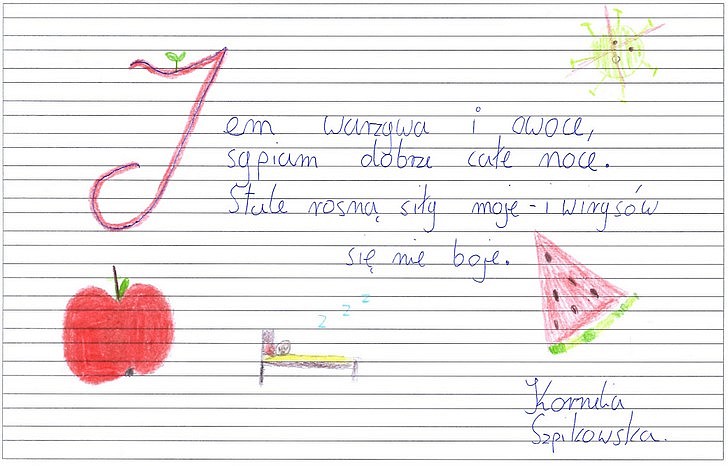 Jem warzywa i owoce,
sypiam dobrze całe noce.
Stale rosną siły moje - i wirusów
się nie boje.
z z z
Kornelia
Szpikowska.